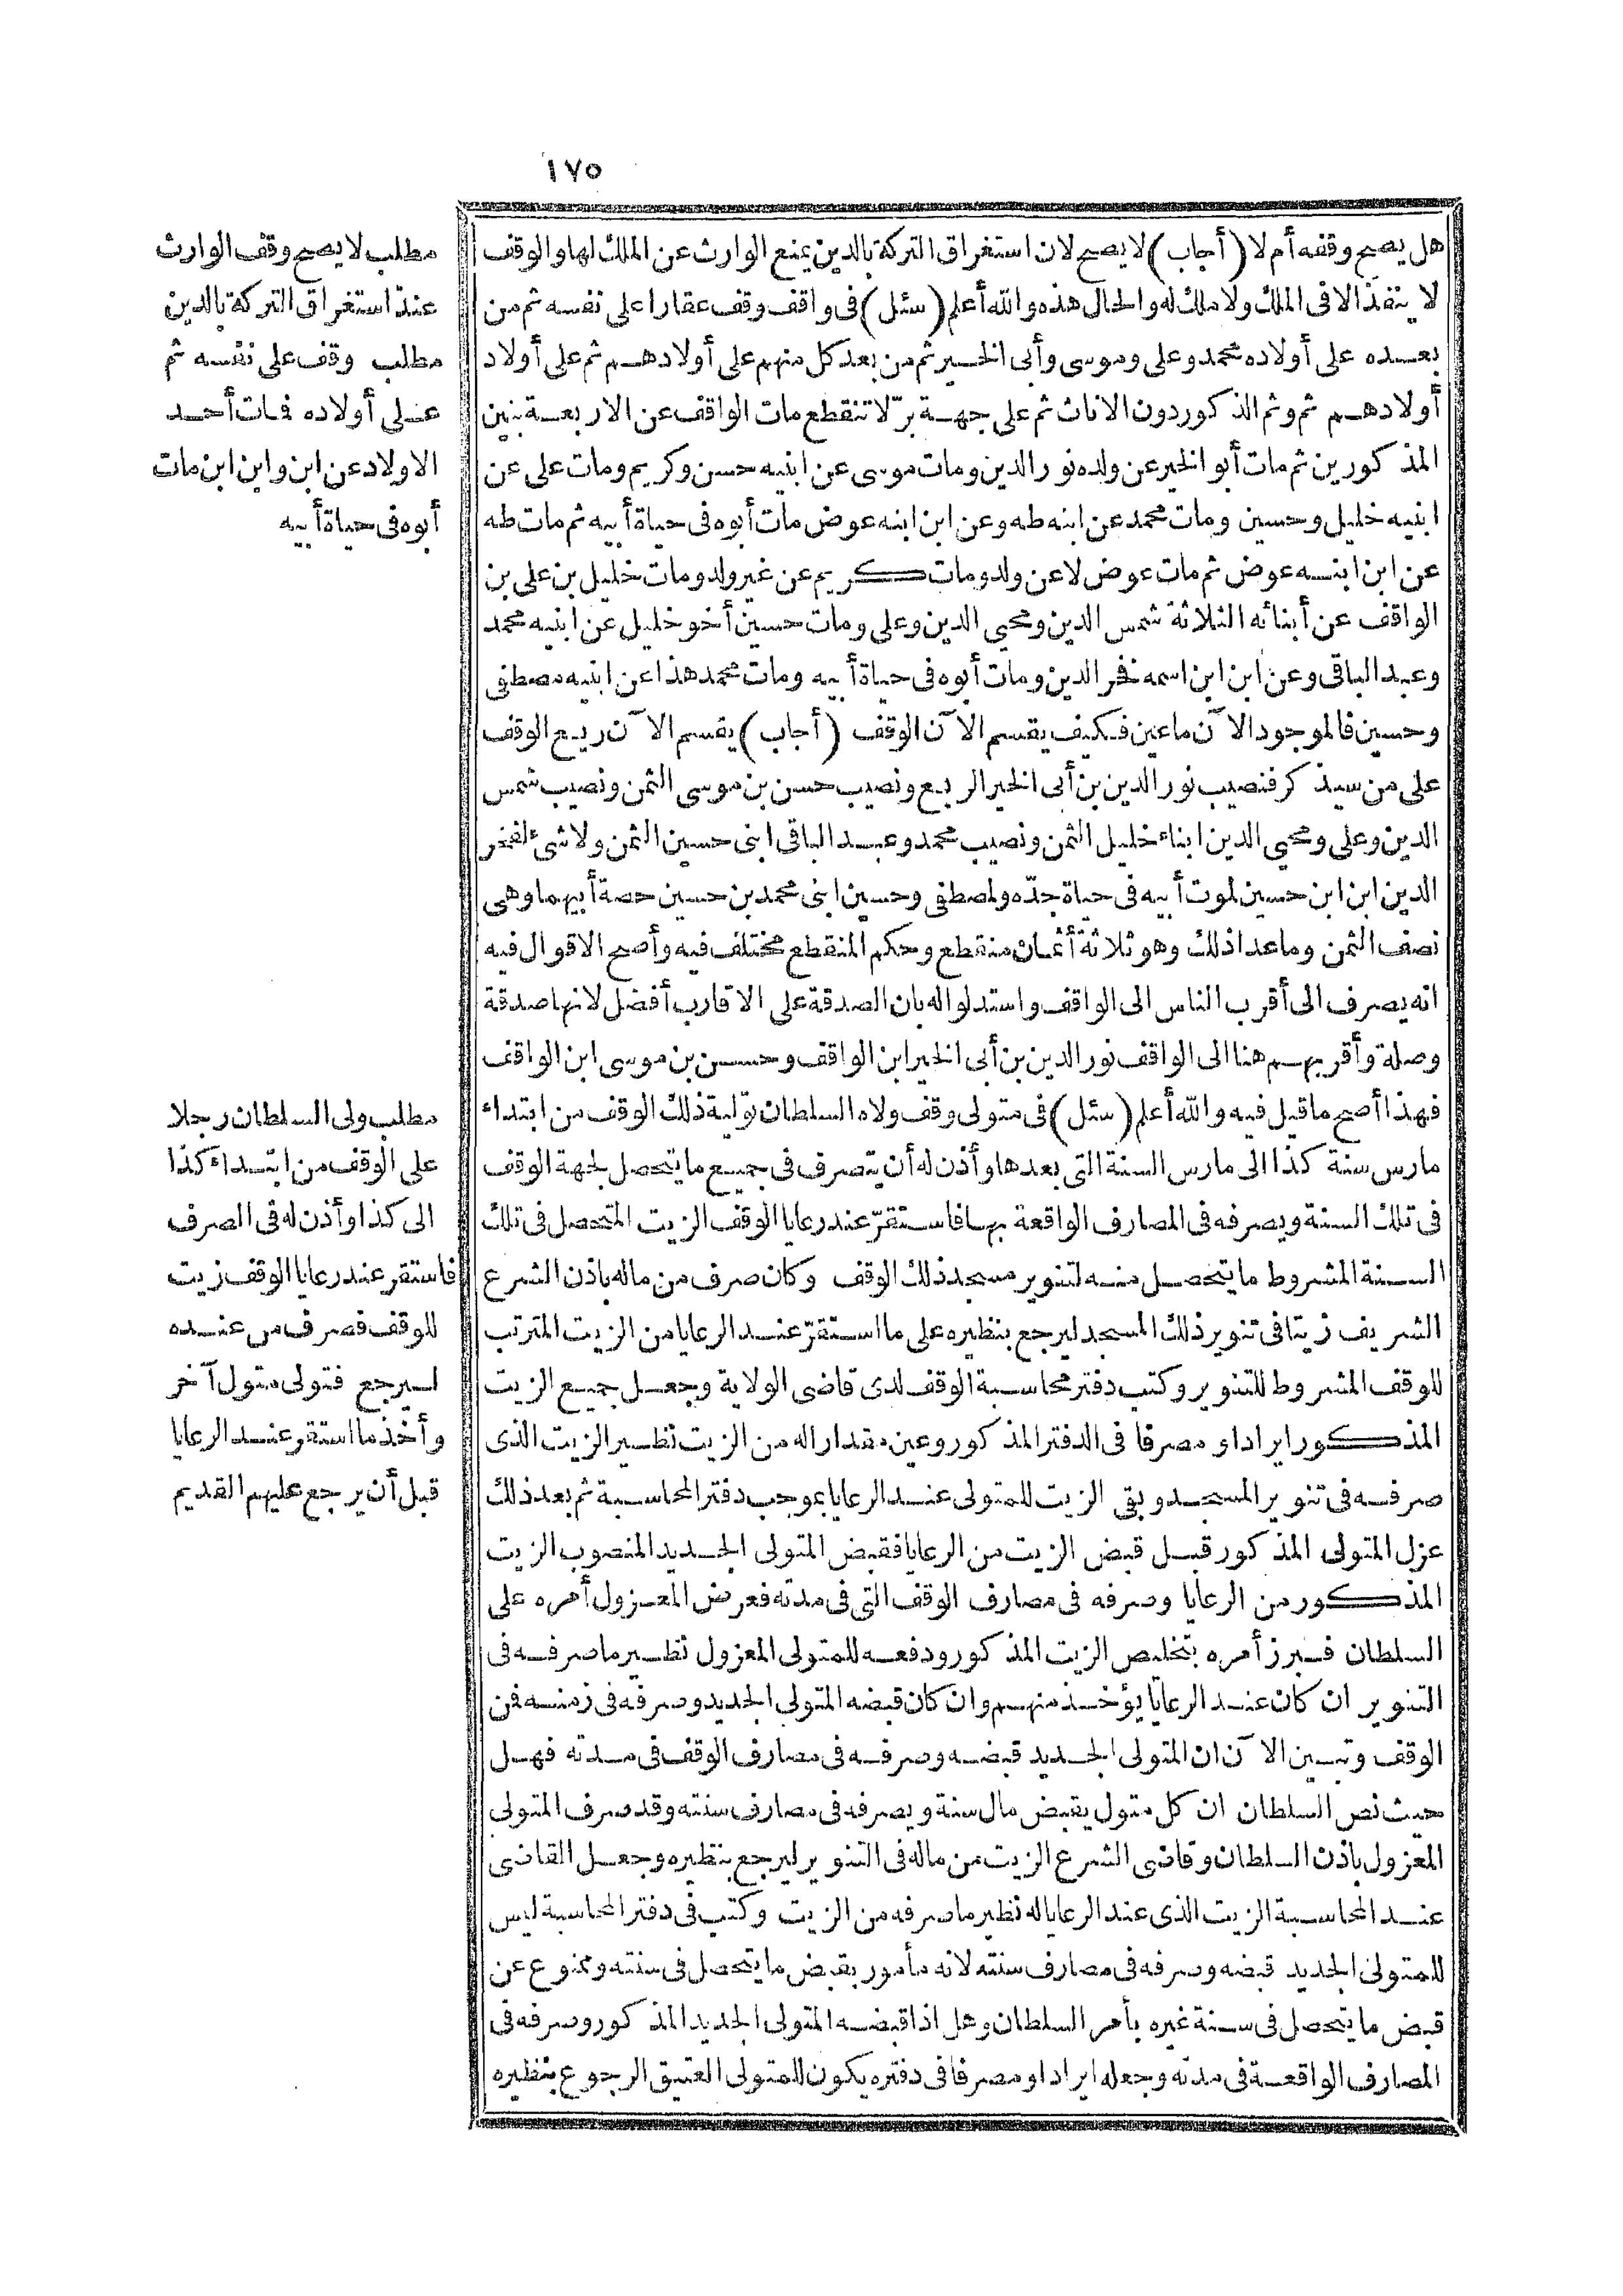 ١٧٥
هل يصح وقفه أم لا (أجاب) لا يصح لان استغراق التركة بالدين يمنع الوارث عن الملك لها والوقف
لا ينفذ الا فى الملك ولا ملك له والحال هذه والله أعلم (سئل) فى واقف وقف عقارا على نفسه ثم من
بعده على أولاده محمد وعلى وموسى وأبى الخير ثم من بعد كل منهم على أولادهم ثم على أولاد
أولادهم ثم وثم الذكور دون الاناث ثم على جهة برّ لا تنقطع مات الواقف عن الاربعة بنين
المذكورين ثم مات أبو الخير عن ولده نور الدين ومات موسى عن ابنيه حسن وكريم ومات على عن
ابنيه خليل وحسين ومات محمد عن ابنه طه وعن ابن ابنه عوض مات أبوه فى حياة أبيه ثم مات طه
عن ابن ابنه عوض ثم مات عوض لا عن ولد ومات كريم عن غير ولد ومات خليل بن على بن
الواقف عن أبنائه الثلاثة شمس الدين ومحيى الدين وعلى ومات حسين أخو خليل عن ابنيه محمد
وعبد الباقى وعن ابن ابن اسمه فخر الدين ومات أبوه فى حياة أبيه ومات محمد هذا عن ابنيه مصطفى
وحسين فالموجود الآن ما عين فكيف يقسم الآن الوقف (أجاب) يقسم الآن ريع الوقف
على من سيذكر فنصيب نور الدين بن أبى الخير الربع ونصيب حسن بن موسى الثمن ونصيب شمس
الدين وعلى ومحيى الدين ابناء خليل الثمن ونصيب محمد وعبد الباقى ابنى حسين الثمن ولا شئ لفخر
الدين ابن ابن حسين لموت أبيه فى حياة جدّه ولمصطفى وحسين ابنى محمد بن حسين حصة أبيهما وهى
نصف الثمن وما عدا ذلك وهو ثلاثة أثمان منقطع وحكم المنقطع مختلف فيه وأصح الاقوال فيه
انه يصرف الى أقرب الناس الى الواقف واستدلوا له بان الصدقة على الاقارب أفضل لانها صدقة
وصلة وأقربهم هنا الى الواقف نور الدين بن أبى الخير ابن الواقف وحسن بن موسى ابن الواقف
فهذا أصح ما قيل فيه والله أعلم (سئل) فى متولى وقف ولاه السلطان تولية ذلك الوقف من ابتداء
مارس سنة كذا الى مارس السنة التى بعدها وأذن له أن يتصرف فى جميع ما يتحصل لجهة الوقف
فى تلك السنة ويصرفه فى المصارف الواقعة بها فاستقرّ عند رعايا الوقف الزيت المتحصل فى تلك
السنة المشروط ما يتحصل منه لتنوير مسجد ذلك الوقف وكان صرف من ماله باذن الشرع
الشريف زيتا فى تنوير ذلك المسجد ليرجع بنظيره على ما استقرّ عند الرعايا من الزيت المترتب
للوقف المشروط للتنوير وكتب دفتر محاسبة الوقف لدى قاضى الولاية وجعل جميع الزيت
المذكور ايرادا و مصرفا فى الدفتر المذكور وعين مقدارا له من الزيت نظير الزيت الذى
صرفه فى تنوير المسجد وبقى الزيت للمتولى عند الرعايا بموجب دفتر المحاسبة ثم بعد ذلك
عزل المتولى المذكور قبل قبض الزيت من الرعايا فقبض المتولى الجديد المنصوب الزيت
المذكور من الرعايا وصرفه فى مصارف الوقف التى فى مدته فعرض المعزول أمره على
السلطان فبرز أمره بتخليص الزيت المذكور ودفعه للمتولى المعزول نظير ما صرفه فى
التنوير ان كان عند الرعايا يؤخذ منهم وان كان قبضه المتولى الجديد وصرفه فى زمنه فمن
الوقف وتبين الآن ان المتولى الجديد قبضه وصرفه فى مصارف الوقف فى مدته فهل
حيث نص السلطان ان كل متول يقبض مال سنة ويصرفه فى مصارف سنته وقد صرف المتولى
المعزول باذن السلطان وقاضى الشرع الزيت من ماله فى التنوير ليرجع بنظيره وجعل القاضى
عند المحاسبة الزيت الذى عند الرعايا له نظير ما صرفه من الزيت وكتب فى دفتر المحاسبة ليس
للمتولى الجديد قبضه وصرفه فى مصارف سنته لانه مأمور بقبض ما يتحصل فى سنته وممنوع عن
قبض ما يتحصل فى سنة غيره بأمر السلطان وهل اذا قبضه المتولى الجديد المذكور وصرفه فى
المصارف الواقعة فى مدته وجعله ايرادا و مصرفا فى دفتره يكون للمتولى العتيق الرجوع بنظيره
مطلب لا يصح وقف الوارث
عند استغراق التركة بالدين
مطلب وقف على نفسه ثم
على أولاده فمات أحد
الاولاد عن ابن وابن ابن مات
أبوه فى حياة أبيه
مطلب ولى السلطان رجلا
على الوقف من ابتداء كذا
الى كذا وأذن له فى الصرف
فاستقر عند رعايا الوقف زيت
للوقف فصرف من عنده
ليرجع فتولى متول آخر
وأخذ ما استقر عند الرعايا
قبل أن يرجع عليهم القديم